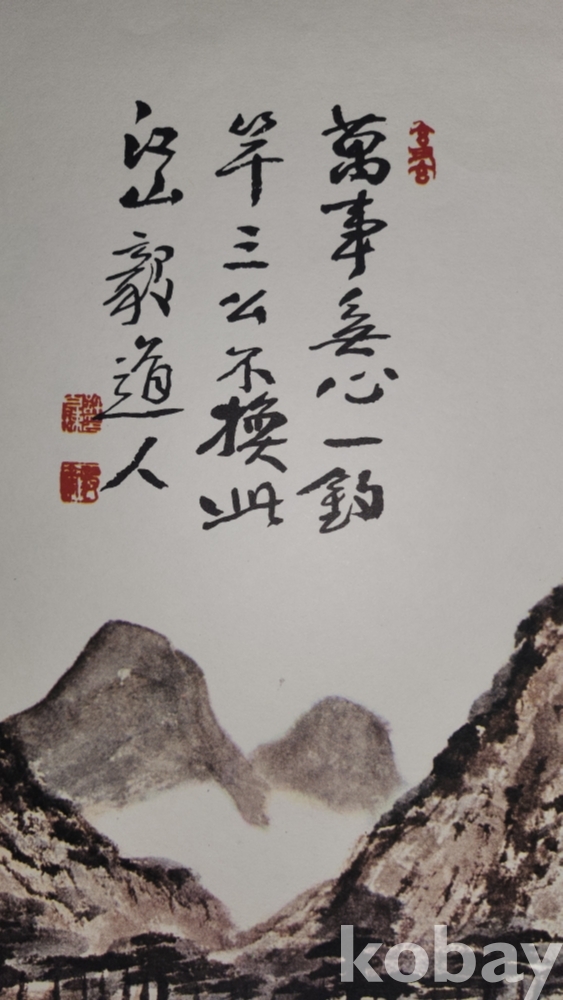 萬事無心一釣
竿三公不換此
江山毅道人
kobay